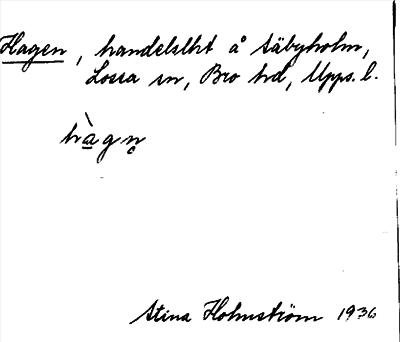 Hagen, handelslht å Säbyholm,
Lossa sn, Bro hd, Upps. l.
hàgn̥
Stina Holmström 1936